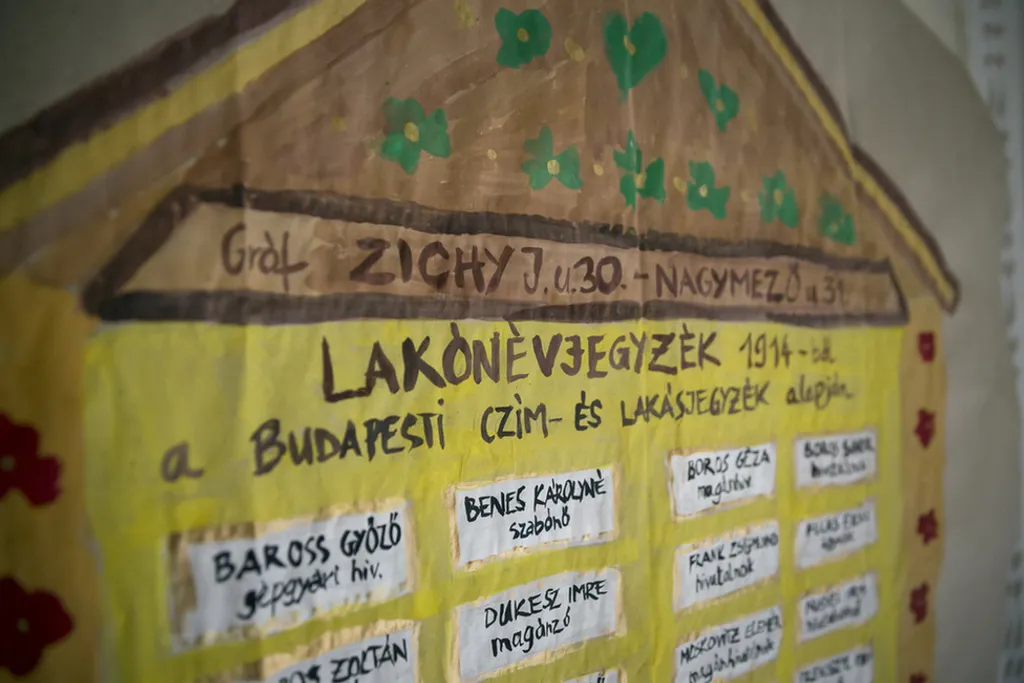 Gróf ZICHY J. u. 30. - NAGYMEZŐ u 31.
LAKÓNÈVJEGYZÉK 1914-ből
a BUDAPESTI CZÌM- ÉS LAKÁSJEGYZÉK alapján
BAROSS GYŐZŐ
gépgyári hiv.
BENES KÁROLYNÉ
szabónő
BOROS GÉZA
magánhiv.
DUKESZ IMRE
magánzó
FRANK ZSIGMOND
hivatalnok
ZOLTÁN
MOSKOVITZ ELEMÉR
magánhivatalnok